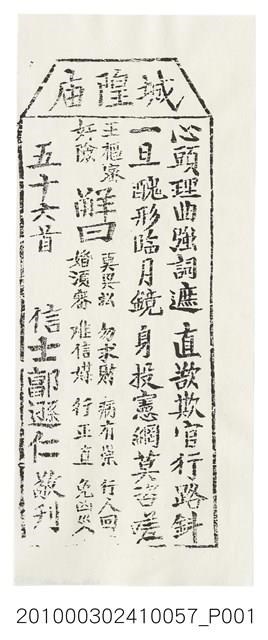 城隍庙
心頭理曲強詞遮　直欲欺官行路斜
一旦醜形臨月鏡　身投憲網莫咨嗟
王樞密
奸險
解曰
莫興訟　勿求財　病有祟　行人回
婚須審　难信媒　行正直　免凶災
五十六首　信士郭遜仁敬刋
201000302410057_P001